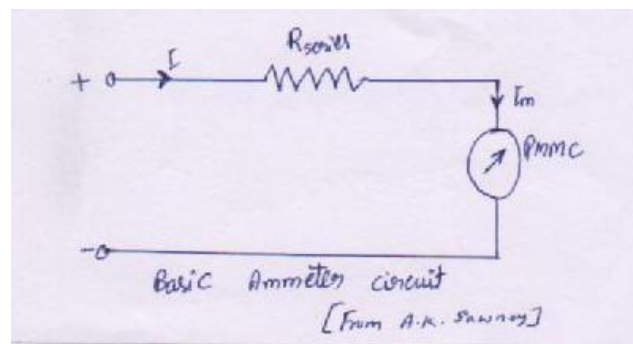 R series
+ I
Im
PMMC
-
Basic Ammeter circuit
[From A.K. Sawney]